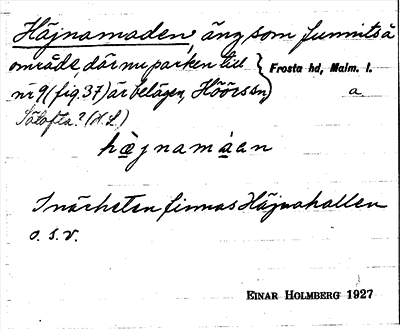 Häjnamaden, äng som funnits å
område, där nu parken till
nr 9 (fig. 37) är belägen, Höörs sn,
Frosta hd, Malm. l.
a
Sätofta? (H.L.)
hæjnamáan
I närheten finnas Häjnahallen
o. s. v.
EINAR HOLMBERG 1927